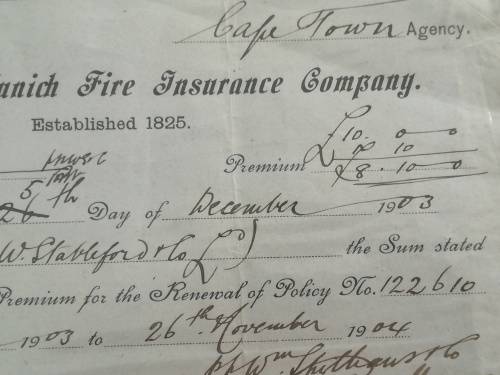 Cape Town Agency.
unich Fire Insurance Company.
Established 1825.
£10. 0 0
10
Premium £8. 10 0
5th
26 Day of December 1903
W. Stableford & Co Ld the Sum stated
Premium for the Renewal of Policy No. 122610
1903 to 26th November 1904
pp Wm & Co